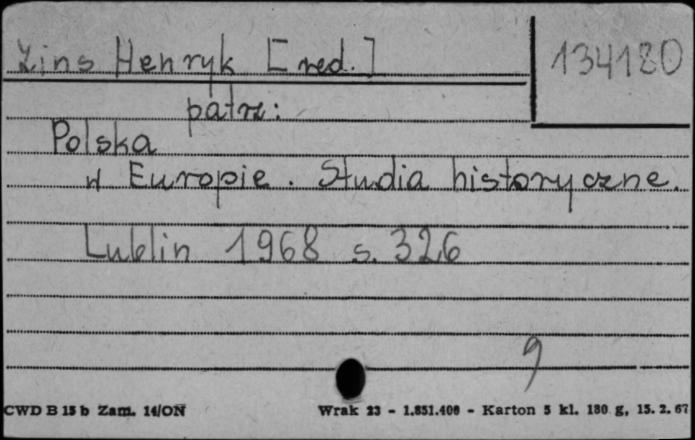 Zins Henryk [red.]
134180
patrz:
Polska
w Europie. Studia historyczne.
Lublin 1968 s. 326
9
CWD B 15 b Zam. 14/ON
Wrak 23 - 1.851.400 - Karton 5 kl. 180 g, 15. 2. 67